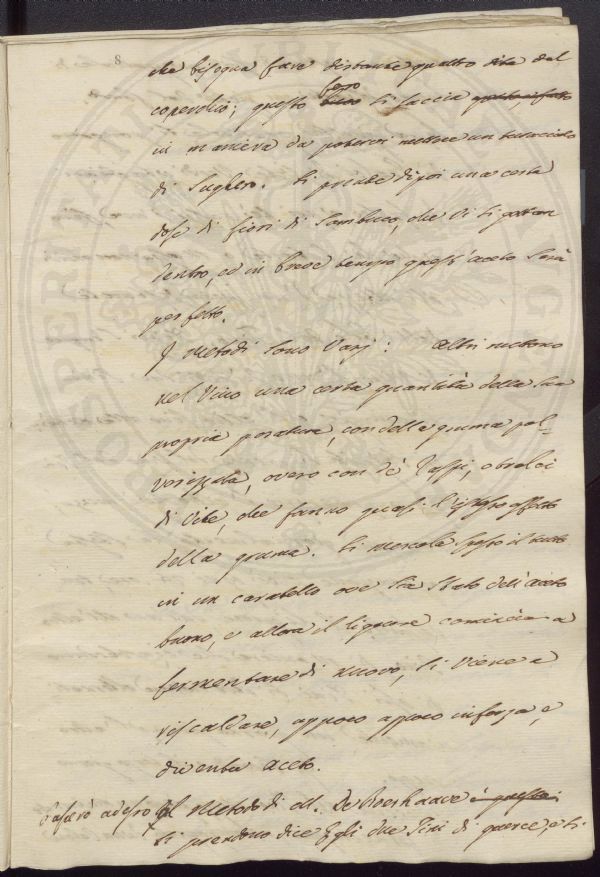 8
che bisogna fare distante quattro dita dal
coperchio; questo foro si faccia
in maniera da potervi mettere un turacciolo
di Sughero. Si prende di poi una certa
dose di fiori di Sambuco, che vi si gettan
dentro, ed in breve tempo quest'aceto sarà
perfetto.
I Metodi sono varj: Altri mettono
nel Vino una certa quantità della sua
propria posatura, con della gruma pol-
verizzata, overo con de' Raspi, o tralci
di Vite, che fanno quasi l'istesso effetto
della gruma. Si mescola spesso il tutto
in un caratello ove sia stato dell'aceto
buono, e allora il liquore comincia a
fermentare di nuovo, si viene a
riscaldare, appoco appoco inforza, e
diventa aceto.
Passerò adesso al Metodo di M. De Boerhaave è questo:
Si prendono dice Egli due Tini di querce, e si